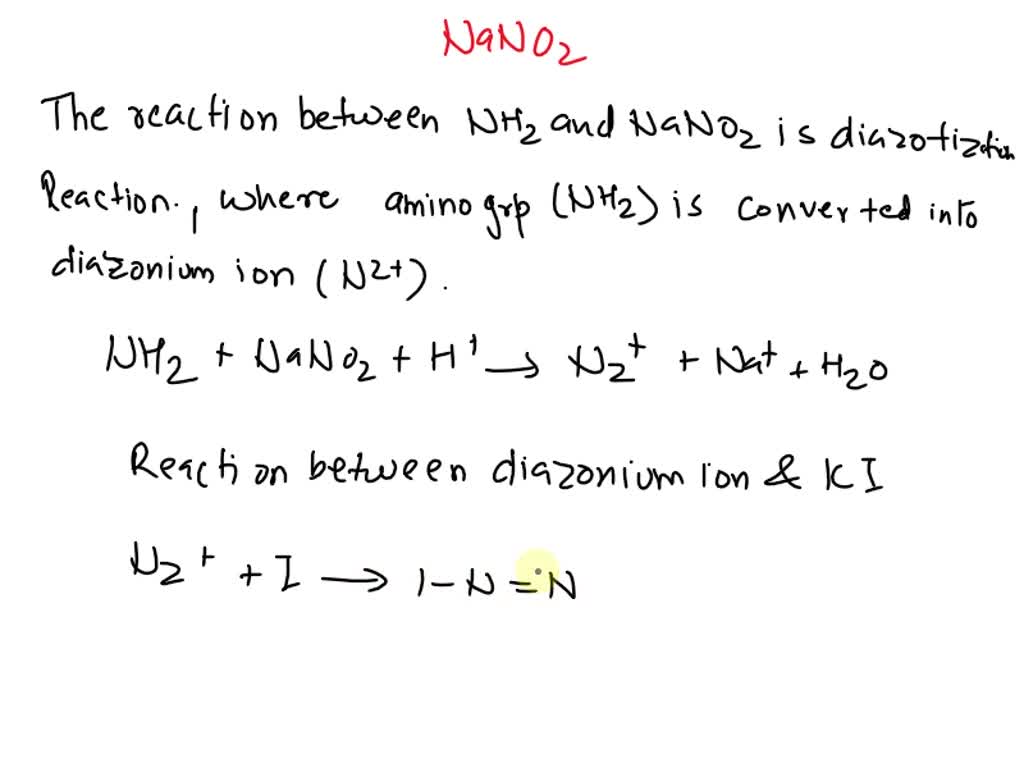 NaNO2
The reaction between NH2 and NaNO2 is diazotization
Reaction., where amino grp (NH2) is converted into
diazonium ion (N2+).
NH2 + NaNO2 + H+ → N2+ + Na+ + H2O
Reaction between diazonium ion & KI
N2+ + I → I-N=N